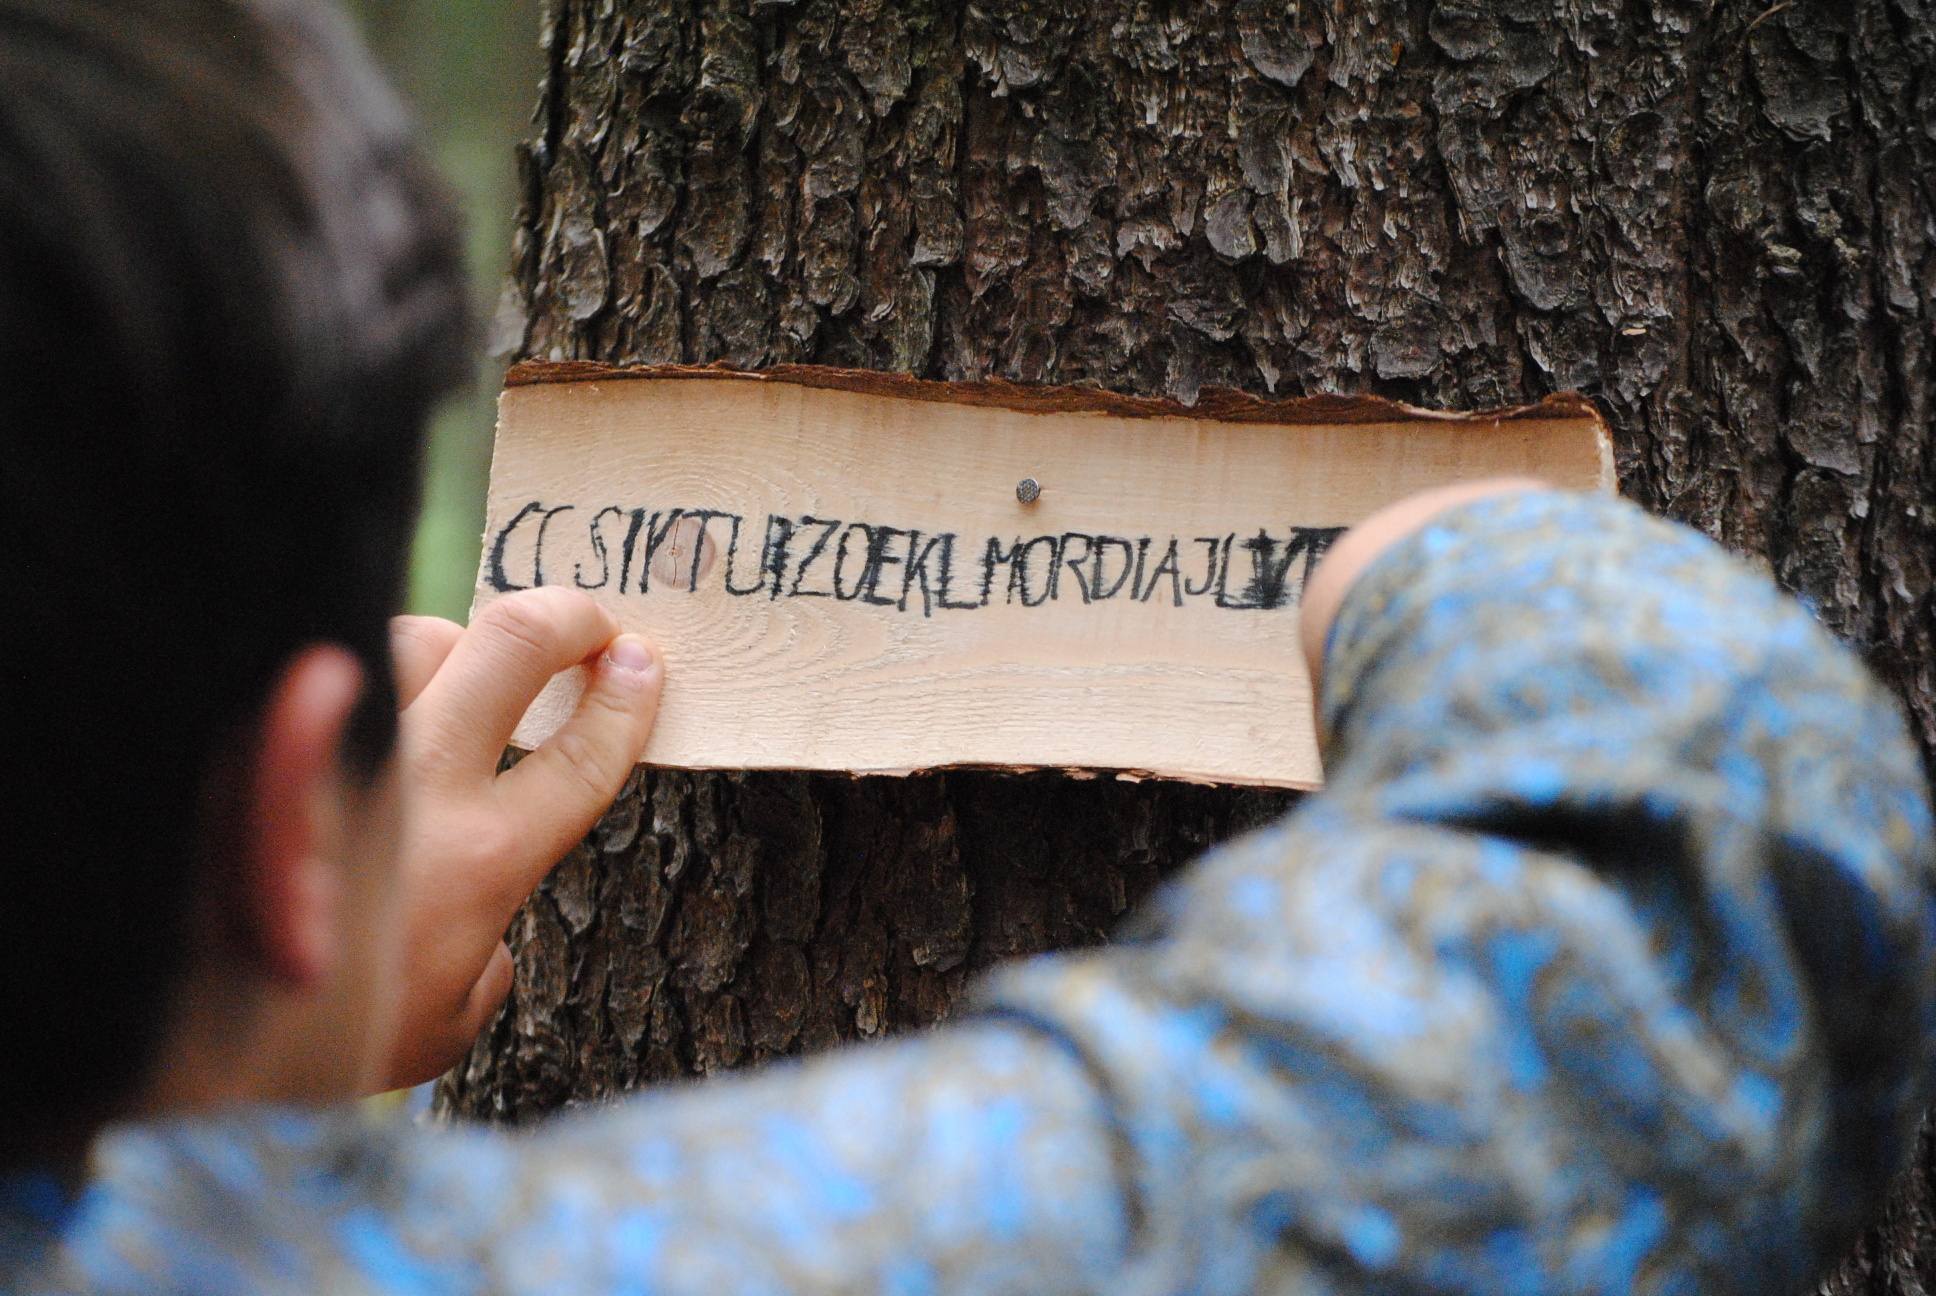 CC SIKTUIZOEKLMORDIAJLVE